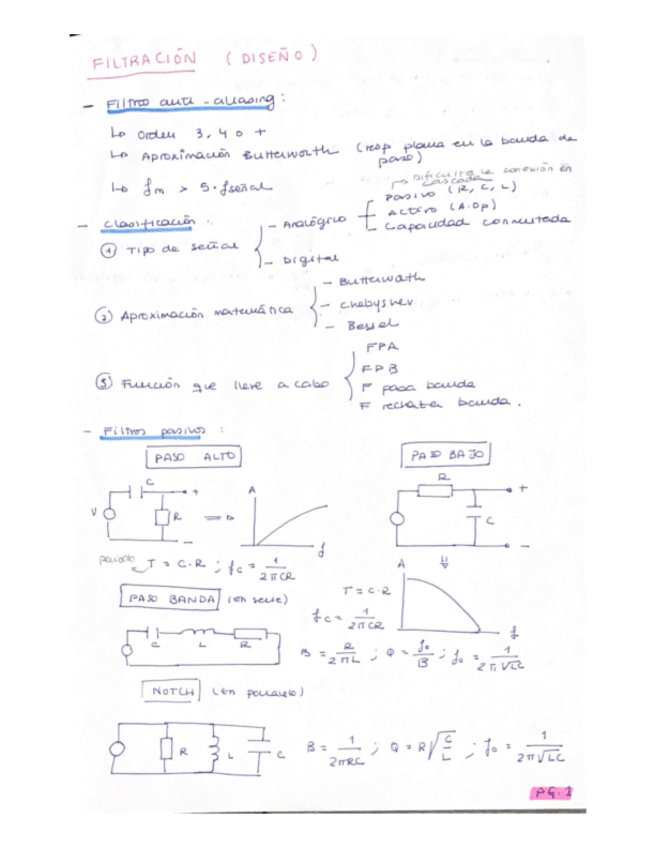 FILTRACIÓN (DISEÑO)
- Filtros anti-aliasing:
↳ Orden 3, 4 o +
↳ Aproximación Butterworth (resp plana en la banda de paso)
↳ fm > 5·fseñal
- Clasificación:
① Tipo de señal
- Analógico
→ Dificulta la conexión en cascada
Pasivo (R, C, L)
Activo (A.Op)
- Capacidad conmutada
- Digital
② Aproximación matemática
- Butterwoth
- Chebyshev
- Bessel
③ Función que lleve a cabo
FPA
FPB
F pasa banda
F rechaza banda.
- Filtros pasivos:
PASO ALTO
PASO BAJO
C
V
R
+
-
⇒
A
f
R
C
+
-
⇓
periodo
T = C·R ; fc = 1/2πCR
PASO BANDA (en serie)
T = C·R
fc = 1/2πCR
A
f
C L R
B = R/2πL ; Q = fo/B ; fo = 1/2π√LC
NOTCH (en paralelo)
R L C
B = 1/2πRC ; Q = R√C/L ; fo = 1/2π√LC
PG.1